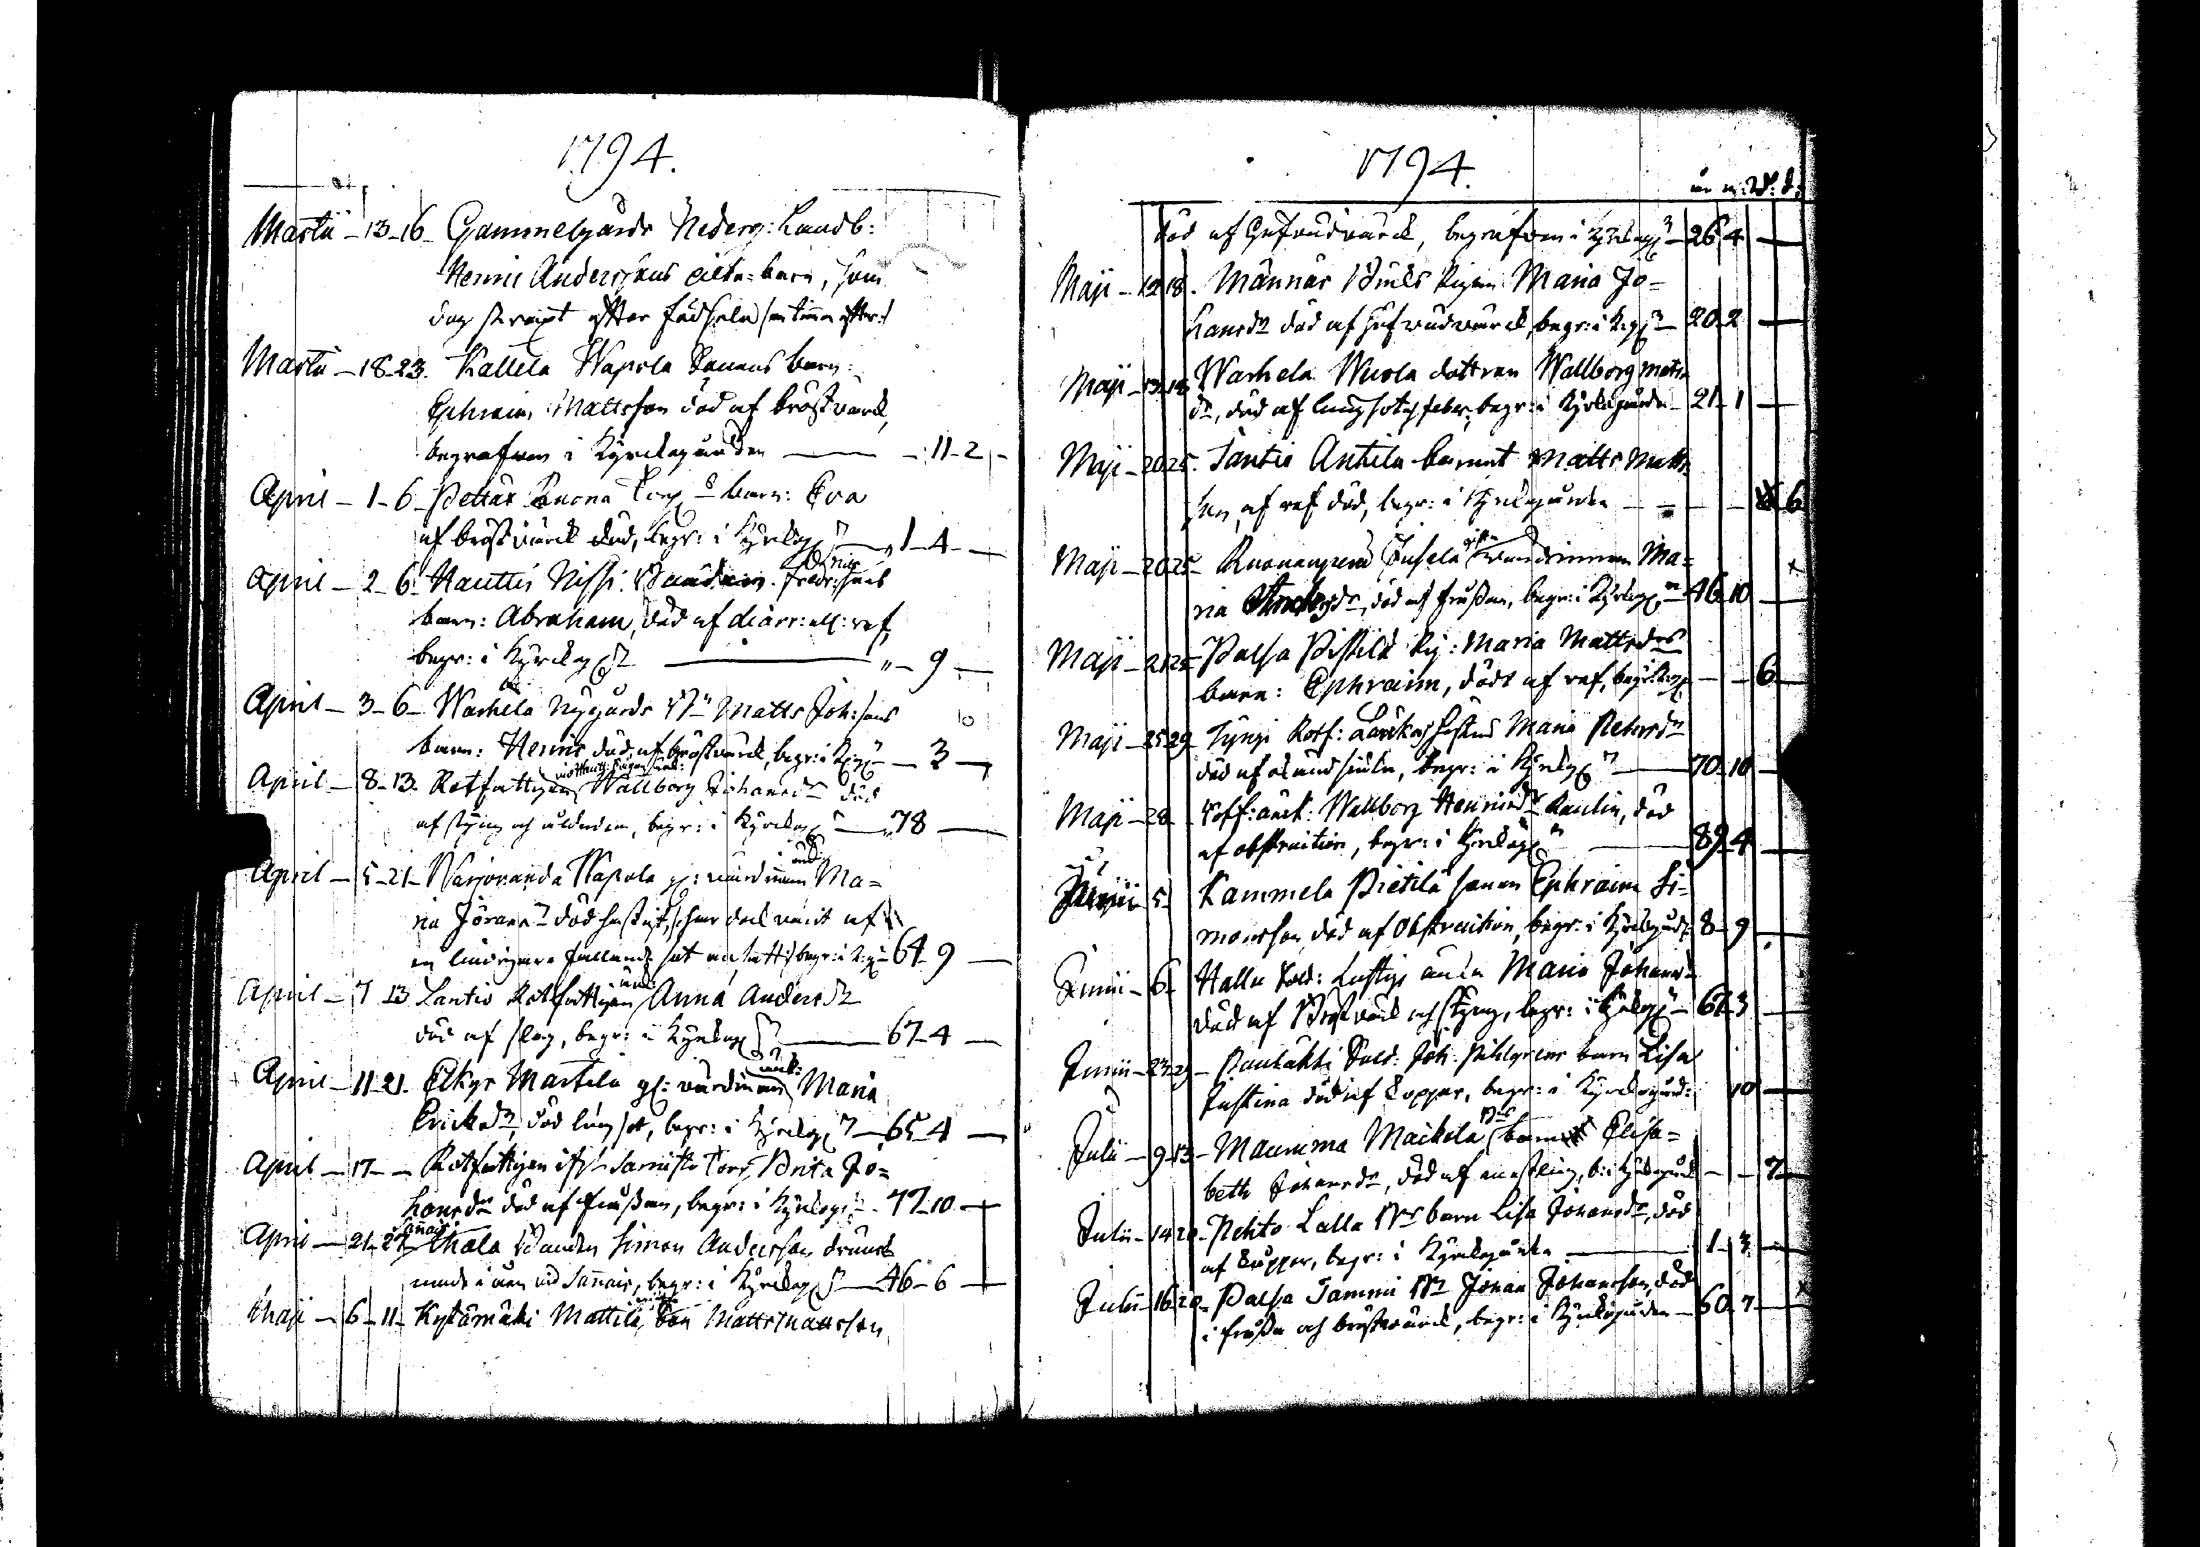 1794.
Martii - 13-16 - Gammelgårds Nederg: Landb:
Henric Anderssons äkta barn, som
dog straxt efter födseln (en timma efter:)
Martii - 18-23. Kallela Wapola Sonens barn:
Ephraim Mattsson död af bröstvärck,
begrafven i Kyrckogården - 11-2 -
April - 1-6 - Pettäx Torp barn: Eva
af bröstvärck död, begr: i Kyrckog - 1-4 -
April - 2-6 - Hauttis Nissi
barn: Abraham, död af diarr: ell: ref,
begr: i Kyrckog - 9 -
April - 3-6 - Warhela Nygårds Matts Joh:sons
barn: Henric död af bröstvärck, begr: i K:g - 3 -
April - 8-13. Rotfattigen Wallborg Johansdr död
af styng och ålderdom, begr: i Kyrckog - 78 -
April - 5-21 - Warjoranda Wapola gl: värdinnan Ma=
ria Jöransdr död hastigt,
begr: i K:g - 64-9 -
April - 7 13 Santio Rotfattigen Anna Andersdr
död af slag, begr: i Kyrckog - 67-4 -
April - 11-21. Elkyr Martela gl: värdinnan Maria
Ericsdr, död lungsot, begr: i Kyrckog - 65-4 -
April - 17 - Rotfattigen Torp, Brita Jo=
hansdr död af frossan, begr: i Kyrckog - 77-10 -
April - 21-27 Sannais Bonden Simon Andersson drunck
nade i vid Sannais, begr: i Kyrckog - 46-6 -
Maji - 6-11 - Kytämäki Mattila Son Matts Mattsson
1794.
år m: W: d:
död af Hufvudvärck, begrafven i Kyrckog - 26 4 -
Maji - 12 18. Männäs Pigan Maria Jo=
hansdr död af hufvudvärck, begr: i K:g - 20-2 -
Maji - Warhela Wicola dottren Wallborg Matts
dr, död af lungsot och feber, begr: i Kyrckogården - 21-1 -
Maji - 20 25. Santio Antila barnet Matts Matts
son, af ref död, begr: i Kyrckogården - 6
Maji - 20 25 - Jusela värdinnan Ma=
ria död af frossan, begr: i Kyrckog - 46 10 -
Maji - 21 25 - Palsa Pistilä Pig: Maria Mattsdrs
barn: Ephraim, dödt af ref, begr: i K:g - 6
Maji - 25 29 - Tyngi Rotf: Maria Petersdr
död af begr: i Kyrckog - 70-10 -
Maji - 28 änck: Wallborg Henricsdr Paulin, död
af obstruction, begr: i Kyrckog - 89-4 -
Junii 5 Kammela Pietilä sonen Ephraim Si=
monsson död af Obstruction, begr: i Kyrckogård - 8-9 -
Junii - 6 - Hallu Sold: Lustigs änka Maria Johansdr
död af Bröstvärck och Styng, begr: i Kyrckog - 67 3 -
Junii - 23 29 - Pauläkti Sold: Joh. Pihlgrens barn Lisa
Justina död af koppor, begr: i Kyrckogård: 10 -
Julii - 9-13 - Maurma Maickola barn Elisa=
beth Johansdr, död af mässling, b: i Kyrckogård - 7 -
Julii - 14 20 - Pehto Lalla barn Lisa Johansdr, död
af kåppor, begr: i Kyrckogården - 1-3 -
Julii - 16 20 - Palsa Tammi Johan Johansson, död
i frossa och bröstvärck, begr: i Kyrckogården - 60-7 -